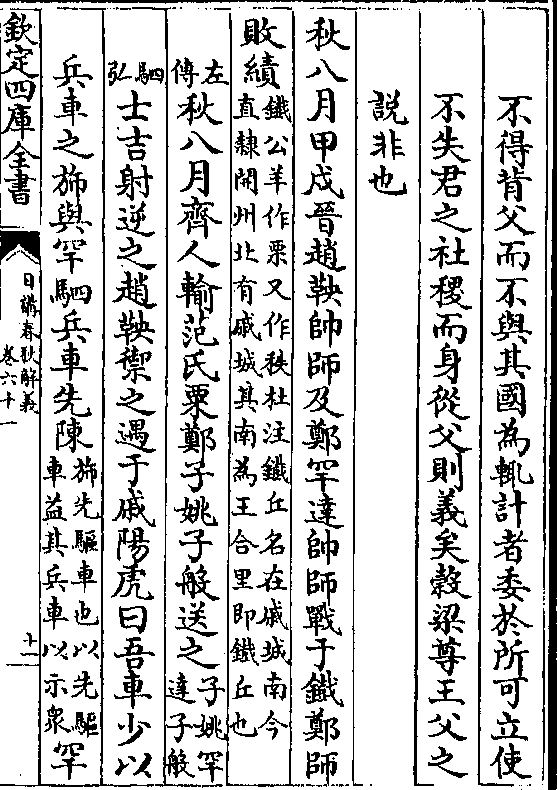 不得背父而不與其國為輒計者委於所可立使
不失君之社稷而身從父則義矣穀梁尊王父之
說非也
秋八月甲戌晉趙鞅帥師及鄭罕達帥師戰于鐵鄭師
敗績
鐵公羊作栗又作秩杜注鐵丘名在戚城南今
直隸開州北有戚城其南為王合里即鐵丘也
左傳
秋八月齊人輸范氏粟鄭子姚子般送之
子姚罕
達子般
駟弘
士吉射逆之趙鞅禦之遇于戚陽虎曰吾車少以
兵車之斾與罕駟兵車先陳
斾先驅車也以先驅
車益其兵車以示衆
罕
欽定四庫全書
日講春秋解義
卷六十一
十一